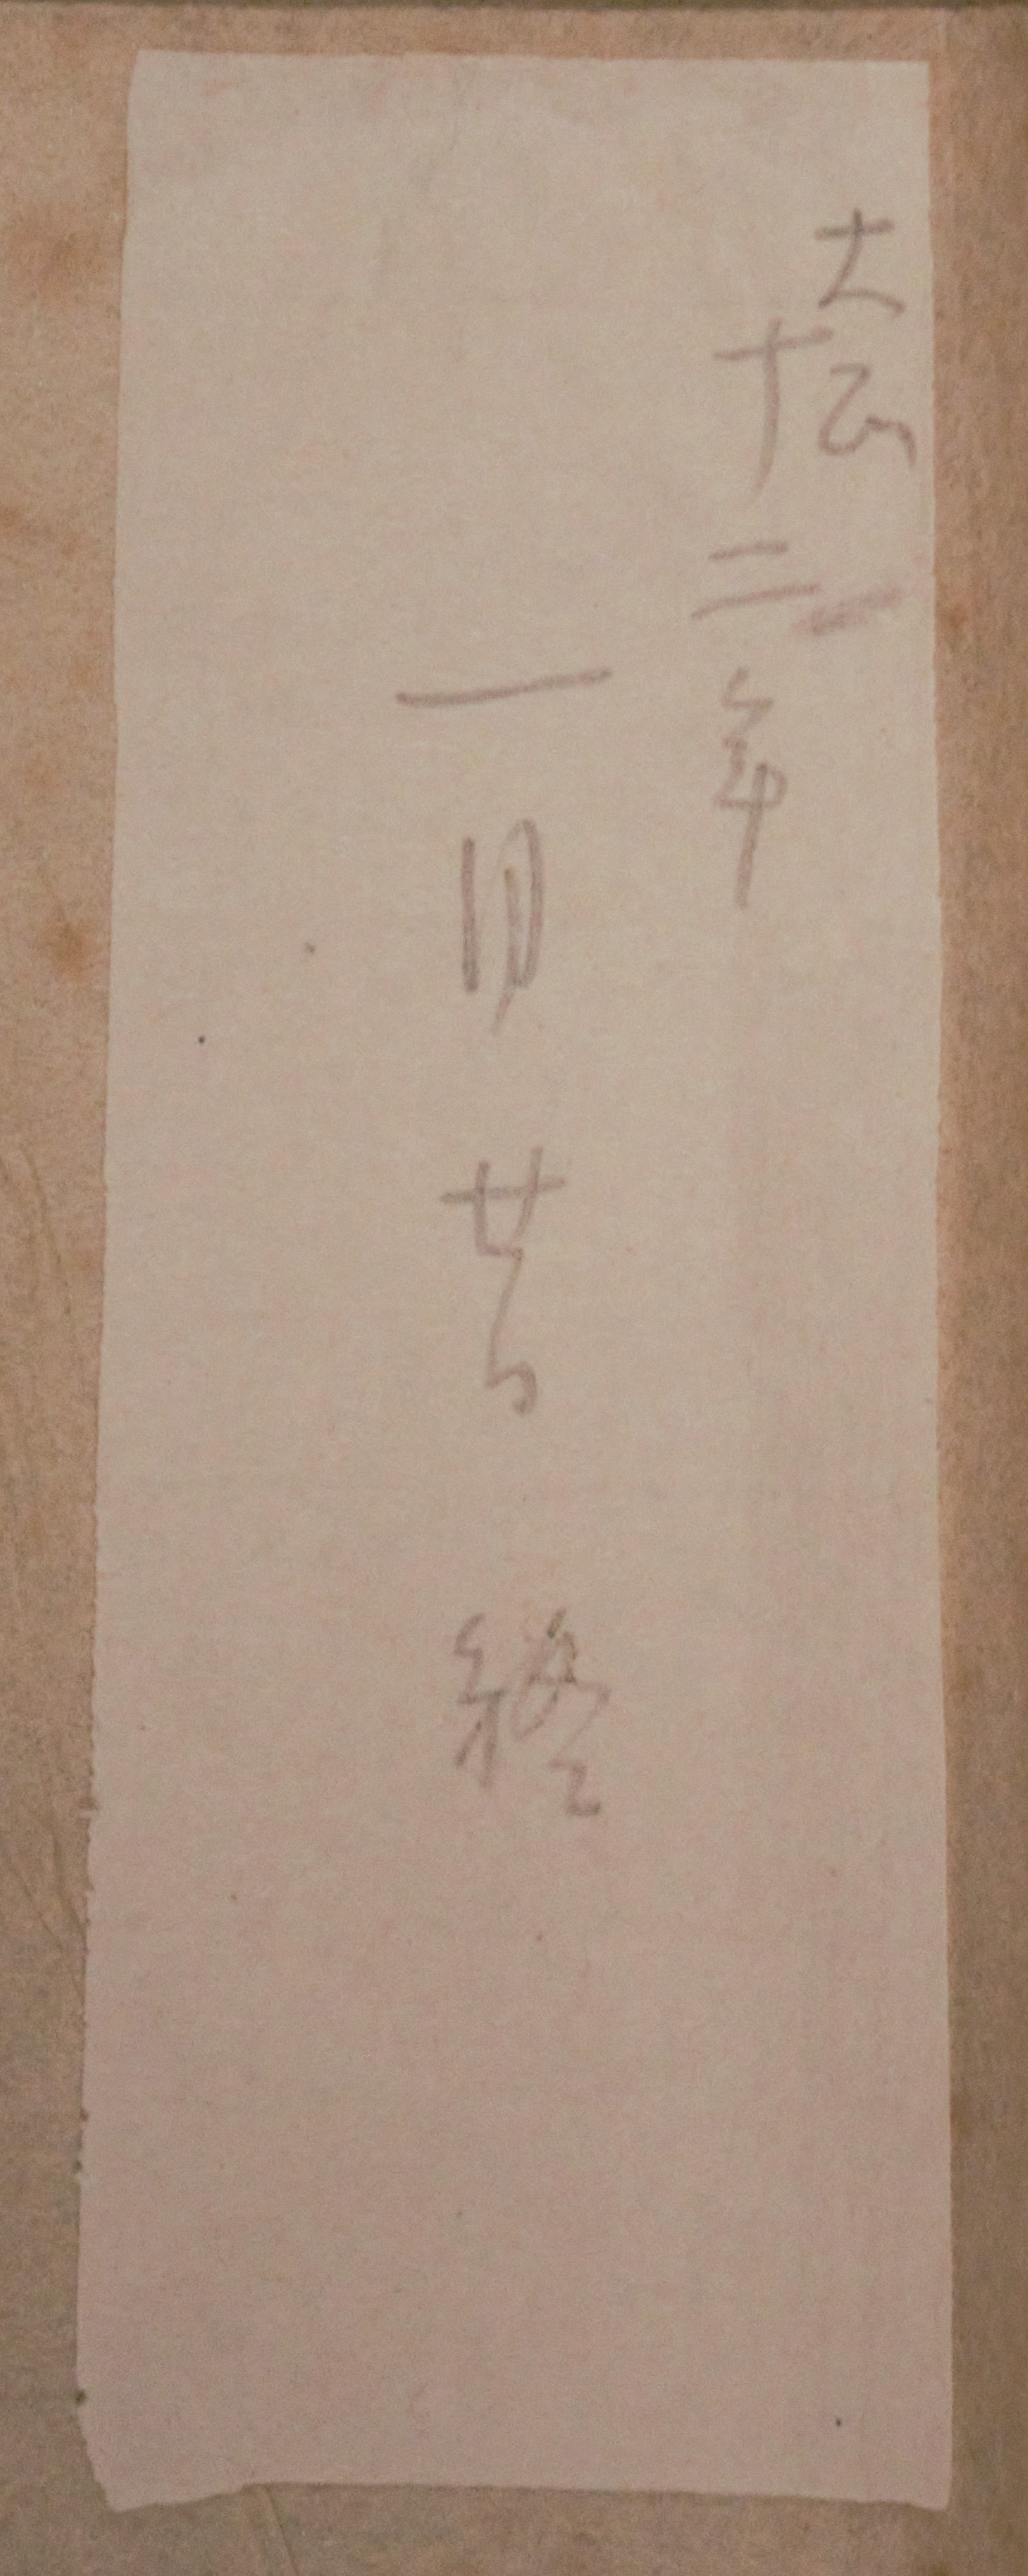 大正
十二年
一月廿日
終